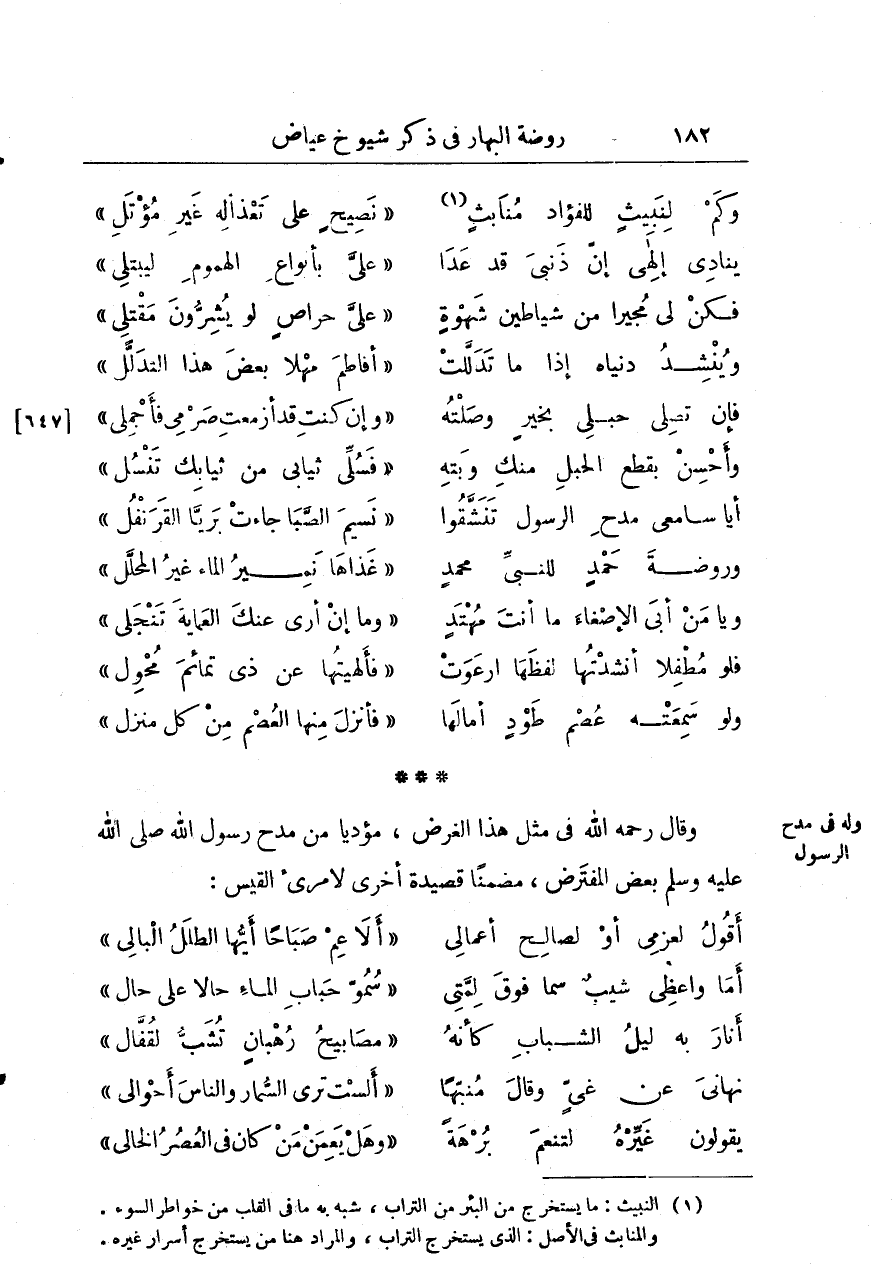 ١٨٢ روضة البهار فى ذكر شيوخ عياض
وَكَمْ لِنَبِيثٍ للفؤاد مُنَابثٍ (١) « نَصِيحٍ على تَعْذالِهِ غَيرِ مُؤْتَلِ »
ينادِى إلٰهى إنّ ذَنبىَ قد عَدَا « علىَّ بأنواعِ الهمومِ ليبتلِى »
فكنْ لى مُجيرا من شياطين شَهْوةٍ « علىَّ حراصٍ لو يُشِرُّونَ مَقْتلِى »
ويُنْشِدُ دنياه إذا ما تَدَلَّلتْ « أفاطمَ مهْلا بعضَ هذا التدَلُّلِ »
فإن تصلِى حبلِى بخيرٍ وصَلْتُه « وإن كنتِ قد أزمعتِ صَرْمى فأَجْمِلى » [٦٤٧]
وأَحْسِنْ بقطع الحبلِ منكِ وبَتهِ « فَسُلِّى ثيابى من ثيابِك تَنْسُل »
أيا سامعى مدحِ الرسول تَنَشَّقُوا « نَسيمَ الصَّبَا جاءتْ بَريَّا القَرَنْفُل »
وروضةَ حَمْدٍ للنبىِّ محمدٍ « غَذاهَا نَمِيرُ الماء غيرُ المحلَّل »
ويا مَنْ أبَى الإصْغاءَ ما أنتَ مهْتَدٍ « وما إنْ أرى عنكَ العمايةَ تَنْجَلى »
فلو مُطْفِلا أنشدْتُها لفظَهَا ارعَوَتْ « فألهيتُها عن ذى تمائمَ مُحْوِل »
ولو سَمِعَتْه عُصْم طَوْدٍ أمالَهَا « فأنزلَ مِنها العُصْم مِنْ كل منزل »
***
وله فى مدح
الرسول
وقال رحمه الله فى مثل هذا الغرض ، مؤديا من مدح رسول الله صلى الله
عليه وسلم بعض المفتَرض ، مضمنًا قصيدة أخرى لامرئ القيس :
أَقُولُ لعزمِى أوْ لصالِح أعمالِى « أَلَا عِمْ صَبَاحًا أَيُّها الطللُ الْبالِى »
أمَا واعظِى شيبٌ سما فوقَ لِمَّتِى « سُمُوّ حَبابِ الماء حالا على حال »
أنارَ به ليلُ الشبابِ كأنهُ « مصابيحُ رُهْبانٍ تُشَبُّ لقُفَّال »
نهانىَ عن غىٍّ وقالَ مُنبّهًا « ألستَ ترى السُّمار والناسَ أحْوالى »
يقولون غَيِّرْهُ لتنعمَ بُرْهَةً « وهَلْ يَعِمَنْ مَنْ كان فى العُصُرُ الخالى »
(١) النبيث : ما يستخرج من البئر من التراب ، شبه به ما فى القلب من خواطر السوء .
والمنابث فى الأصل : الذى يستخرج التراب ، والمراد هنا من يستخرج أسرار غيره .